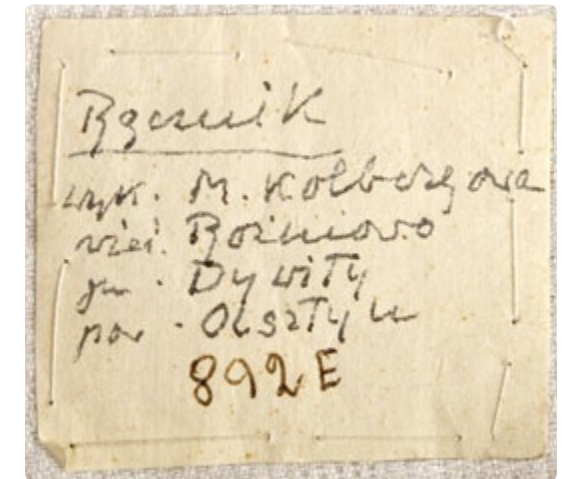 Ręcznik
wyk. M. Kolbergowa
wieś
gm. Dywity
pow. Olsztyn
892 E